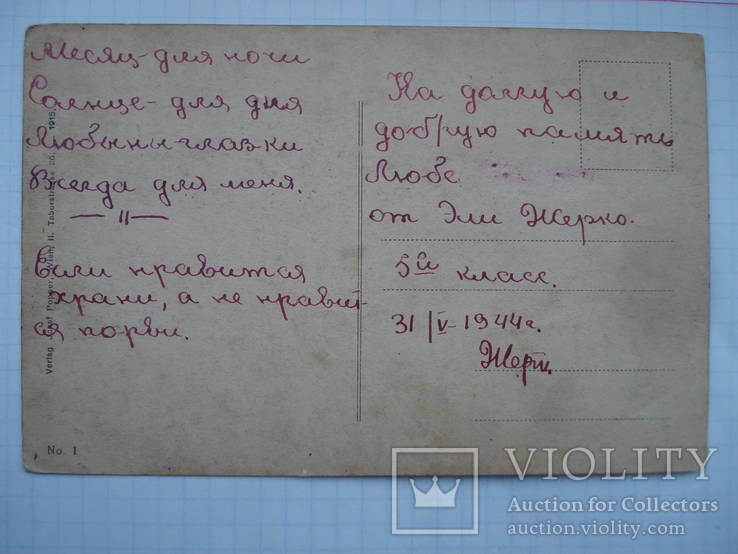 Месяц-для ночи
Солнце-для дня
Любыны-глазки
Всегда для меня.
— 11 —
Если нравится
храни, а не нравит-
ся порви.
На долгую и
добрую память
Любе
от Эли Жерко.
5й класс.
31/V-1944г.
Жерк.
Verlag Josef Popper, Wien, II. Taborstrasse 1915
No. 1
VIOLITY
Auction for Collectors
auction.violity.com